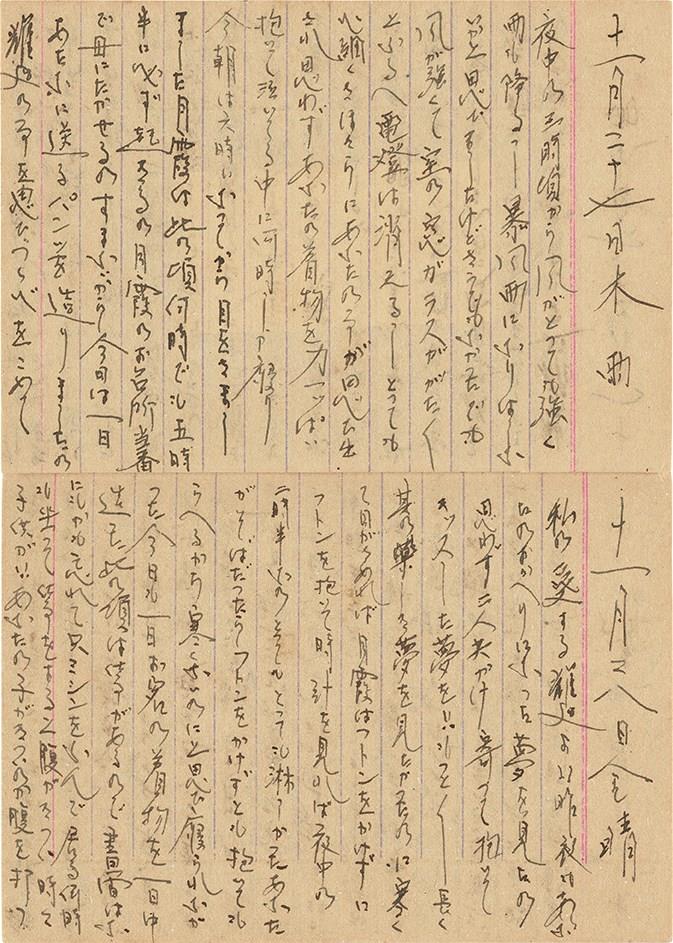 十一月二十七日木雨
夜中の三時頃から風がとっても強く
雨も降るし暴風雨になりはしな
いかと思ひましたけどさうでもなかったでも
風が強くて室の窓がラスががたく
となるヘ電燈は消えるしとっても
心細くなほさらにあなたの事が思ひ出
され思わずあなたの着物を力一っぱい
抱いて泣いてる中に何時しか寝り
今朝は六時になってから目をさまし
ました月霞は此の頃何時でも五時
半に必ず起きるの月霞のお台所当番
で母にたかせるのすまないから今日は一日
あなたに送るパンツを造りましたの
雄の事を思ひつゝ心をこめて
十一月二八日金晴
私の愛する雄よ!!昨夜もあな
たのおかへりになった夢を見たの
思わず二人共かけ寄って抱いて
キッスした夢を!!もっとくし長く
其の楽しき夢を見たかったのに寒く
て目がさめれば月霞はフトンをかけずに
フトンを抱いて時計を見れば夜中の
二時半なのとってもとっても淋しかったあなた
がそばだったらフトンをかけずとも抱いても
らへるから寒くないのにと思ひ寝られなか
った今日も一日お客の着物を一日中
造った此の頃は仕事があるので昼間はな
にもかも忘れて只ミシンをふんで居る何時
も坐って仕事をすると腹がきつい時々
子供が!!あなたの子がきついのか腹を打つ